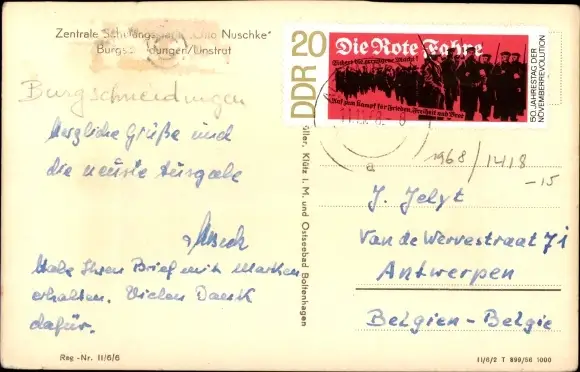 Zentrale Schulungsstätte "Otto Nuschke"
Burgscheidungen/Unstrut
Burgscheidungen
Herzliche Grüße und
die neuste Ausgabe
Habe Ihren Brief mit Marken
erhalten. Vielen Dank
dafür.
Reg.-Nr. 11/6/6
20
DDR
Die Rote Fahne
Auf zum Kampf für Frieden, Freiheit und Brot
50. JAHRESTAG DER
NOVEMBERREVOLUTION
Klütz i. M. und Ostseebad Boltenhagen
1968/1418
-15
J. Jelyt
Van de Wervestraat 71
Antwerpen
Belgien-Belgie
11/6/2 T 899/56 1000